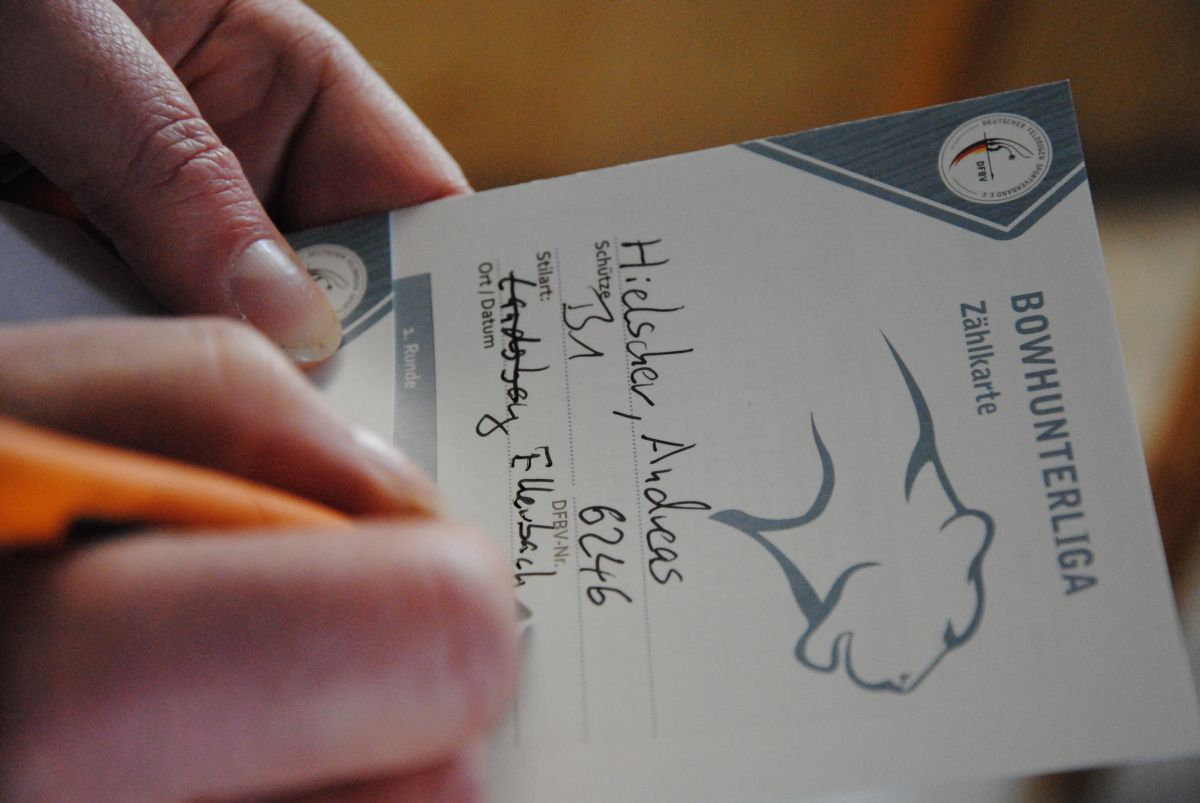 DEUTSCHER FELDBOGEN SPORTVERBAND E.V.
DFBV
BOWHUNTERLIGA
Zählkarte
Hielscher, Andreas
Schütze
B1 6246
Stilart: DFBV-Nr.
Ellerbach
Ort / Datum
1. Runde